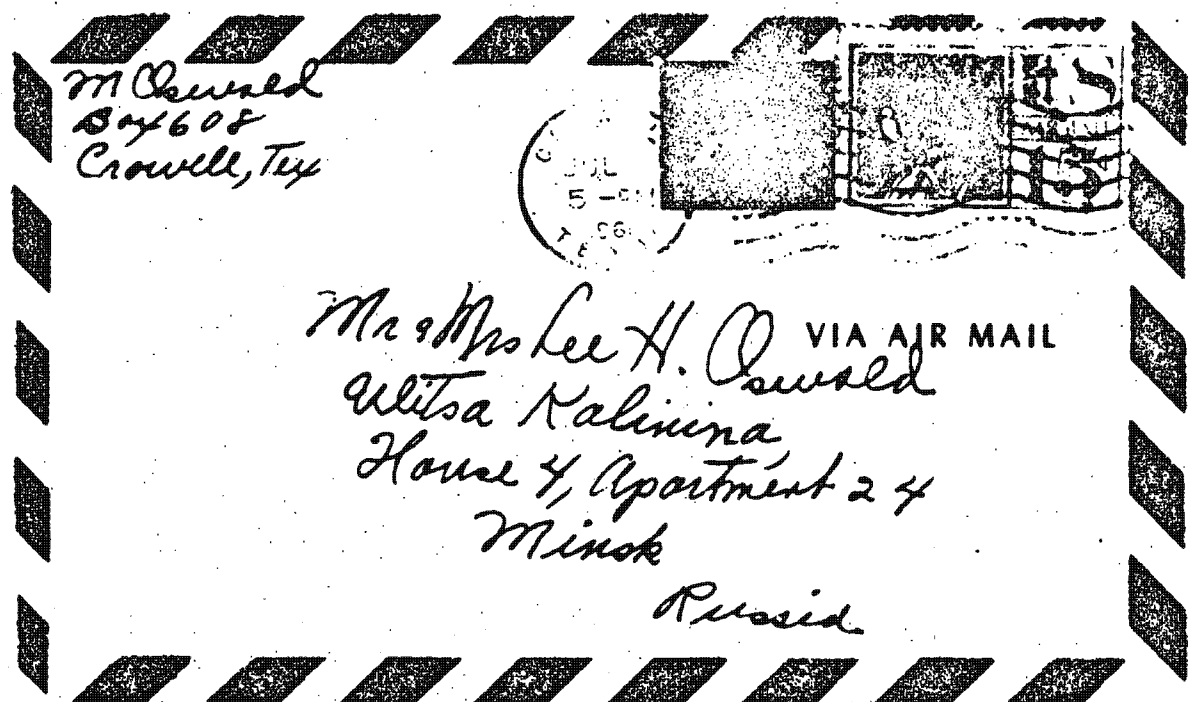 M Oswald
Box 608
Crowell, Tex
JUL
5
TE
15
VIA AIR MAIL
Mr & Mrs Lee H. Oswald
Ulitsa Kalinina,
House 4, Apartment 24
Minsk
Russia